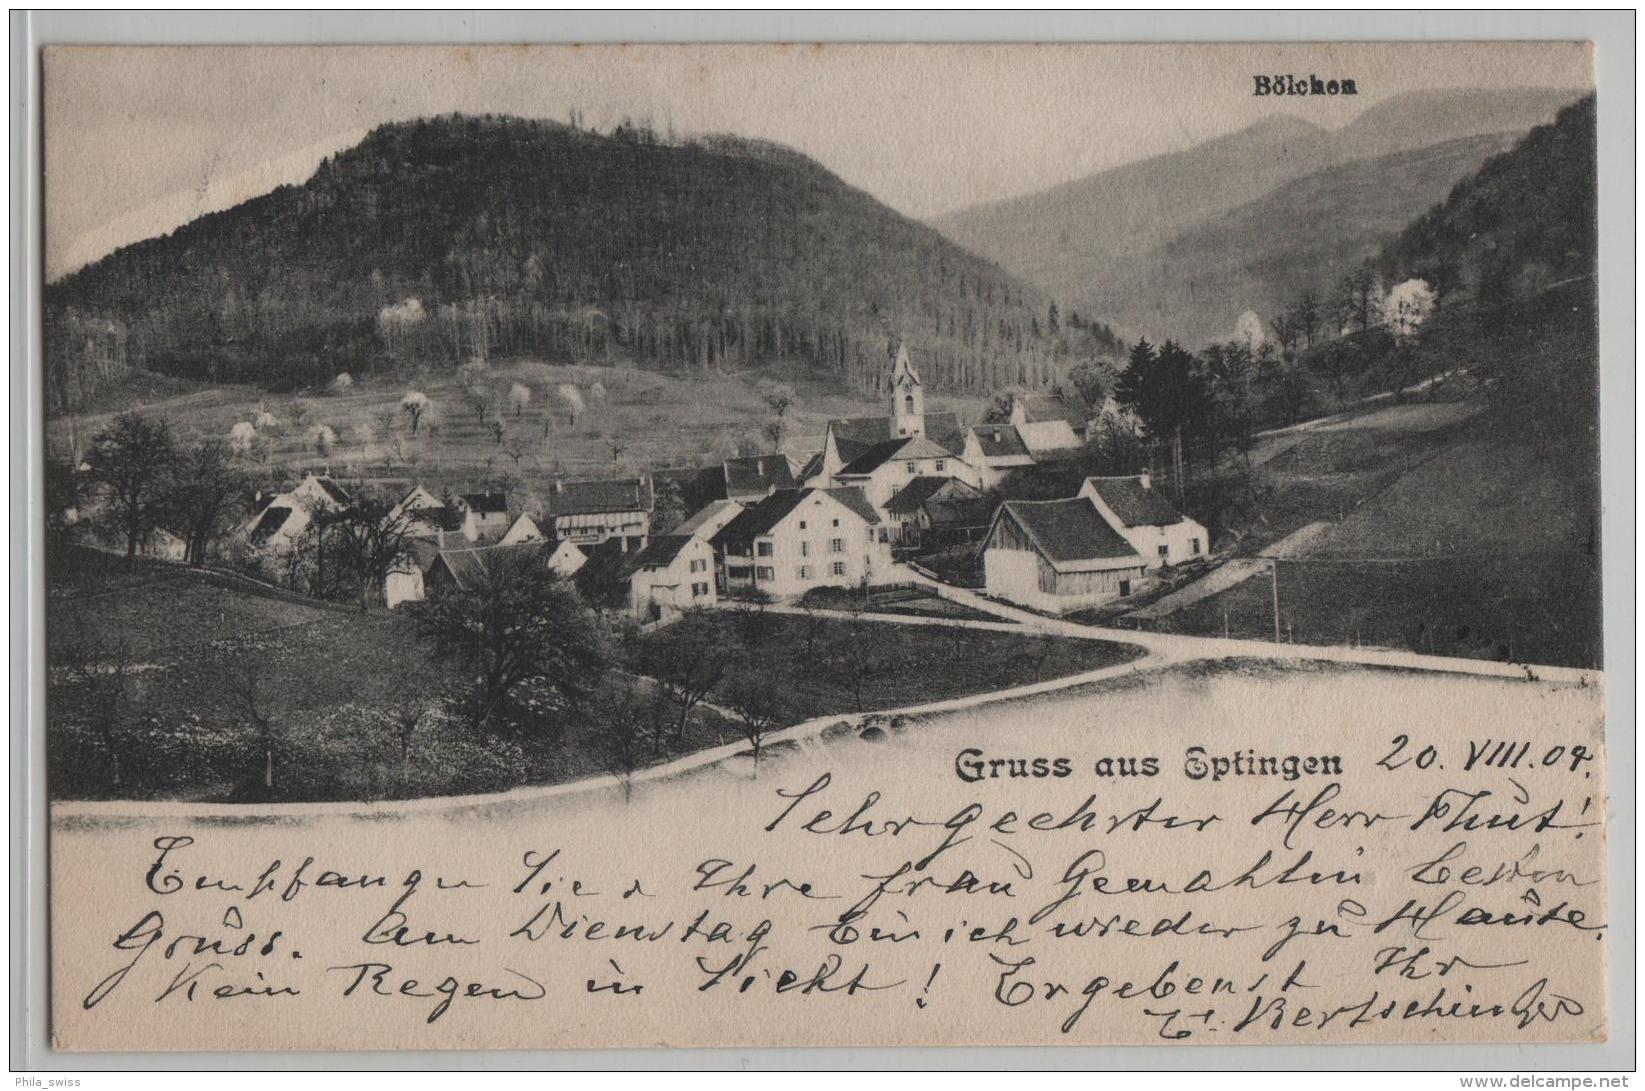 Bölchen
Gruss aus Eptingen 20. VIII. 04.
Sehr geehrter Herr !
Empfangen Sie & Ihre Frau Gemahlin besten
Gruss. Am Dienstag bin ich wieder zu Hause.
Kein Regen in Sicht! Ergebenst Ihr
E. Bertschinger
Phila_swiss
www.delcampe.net